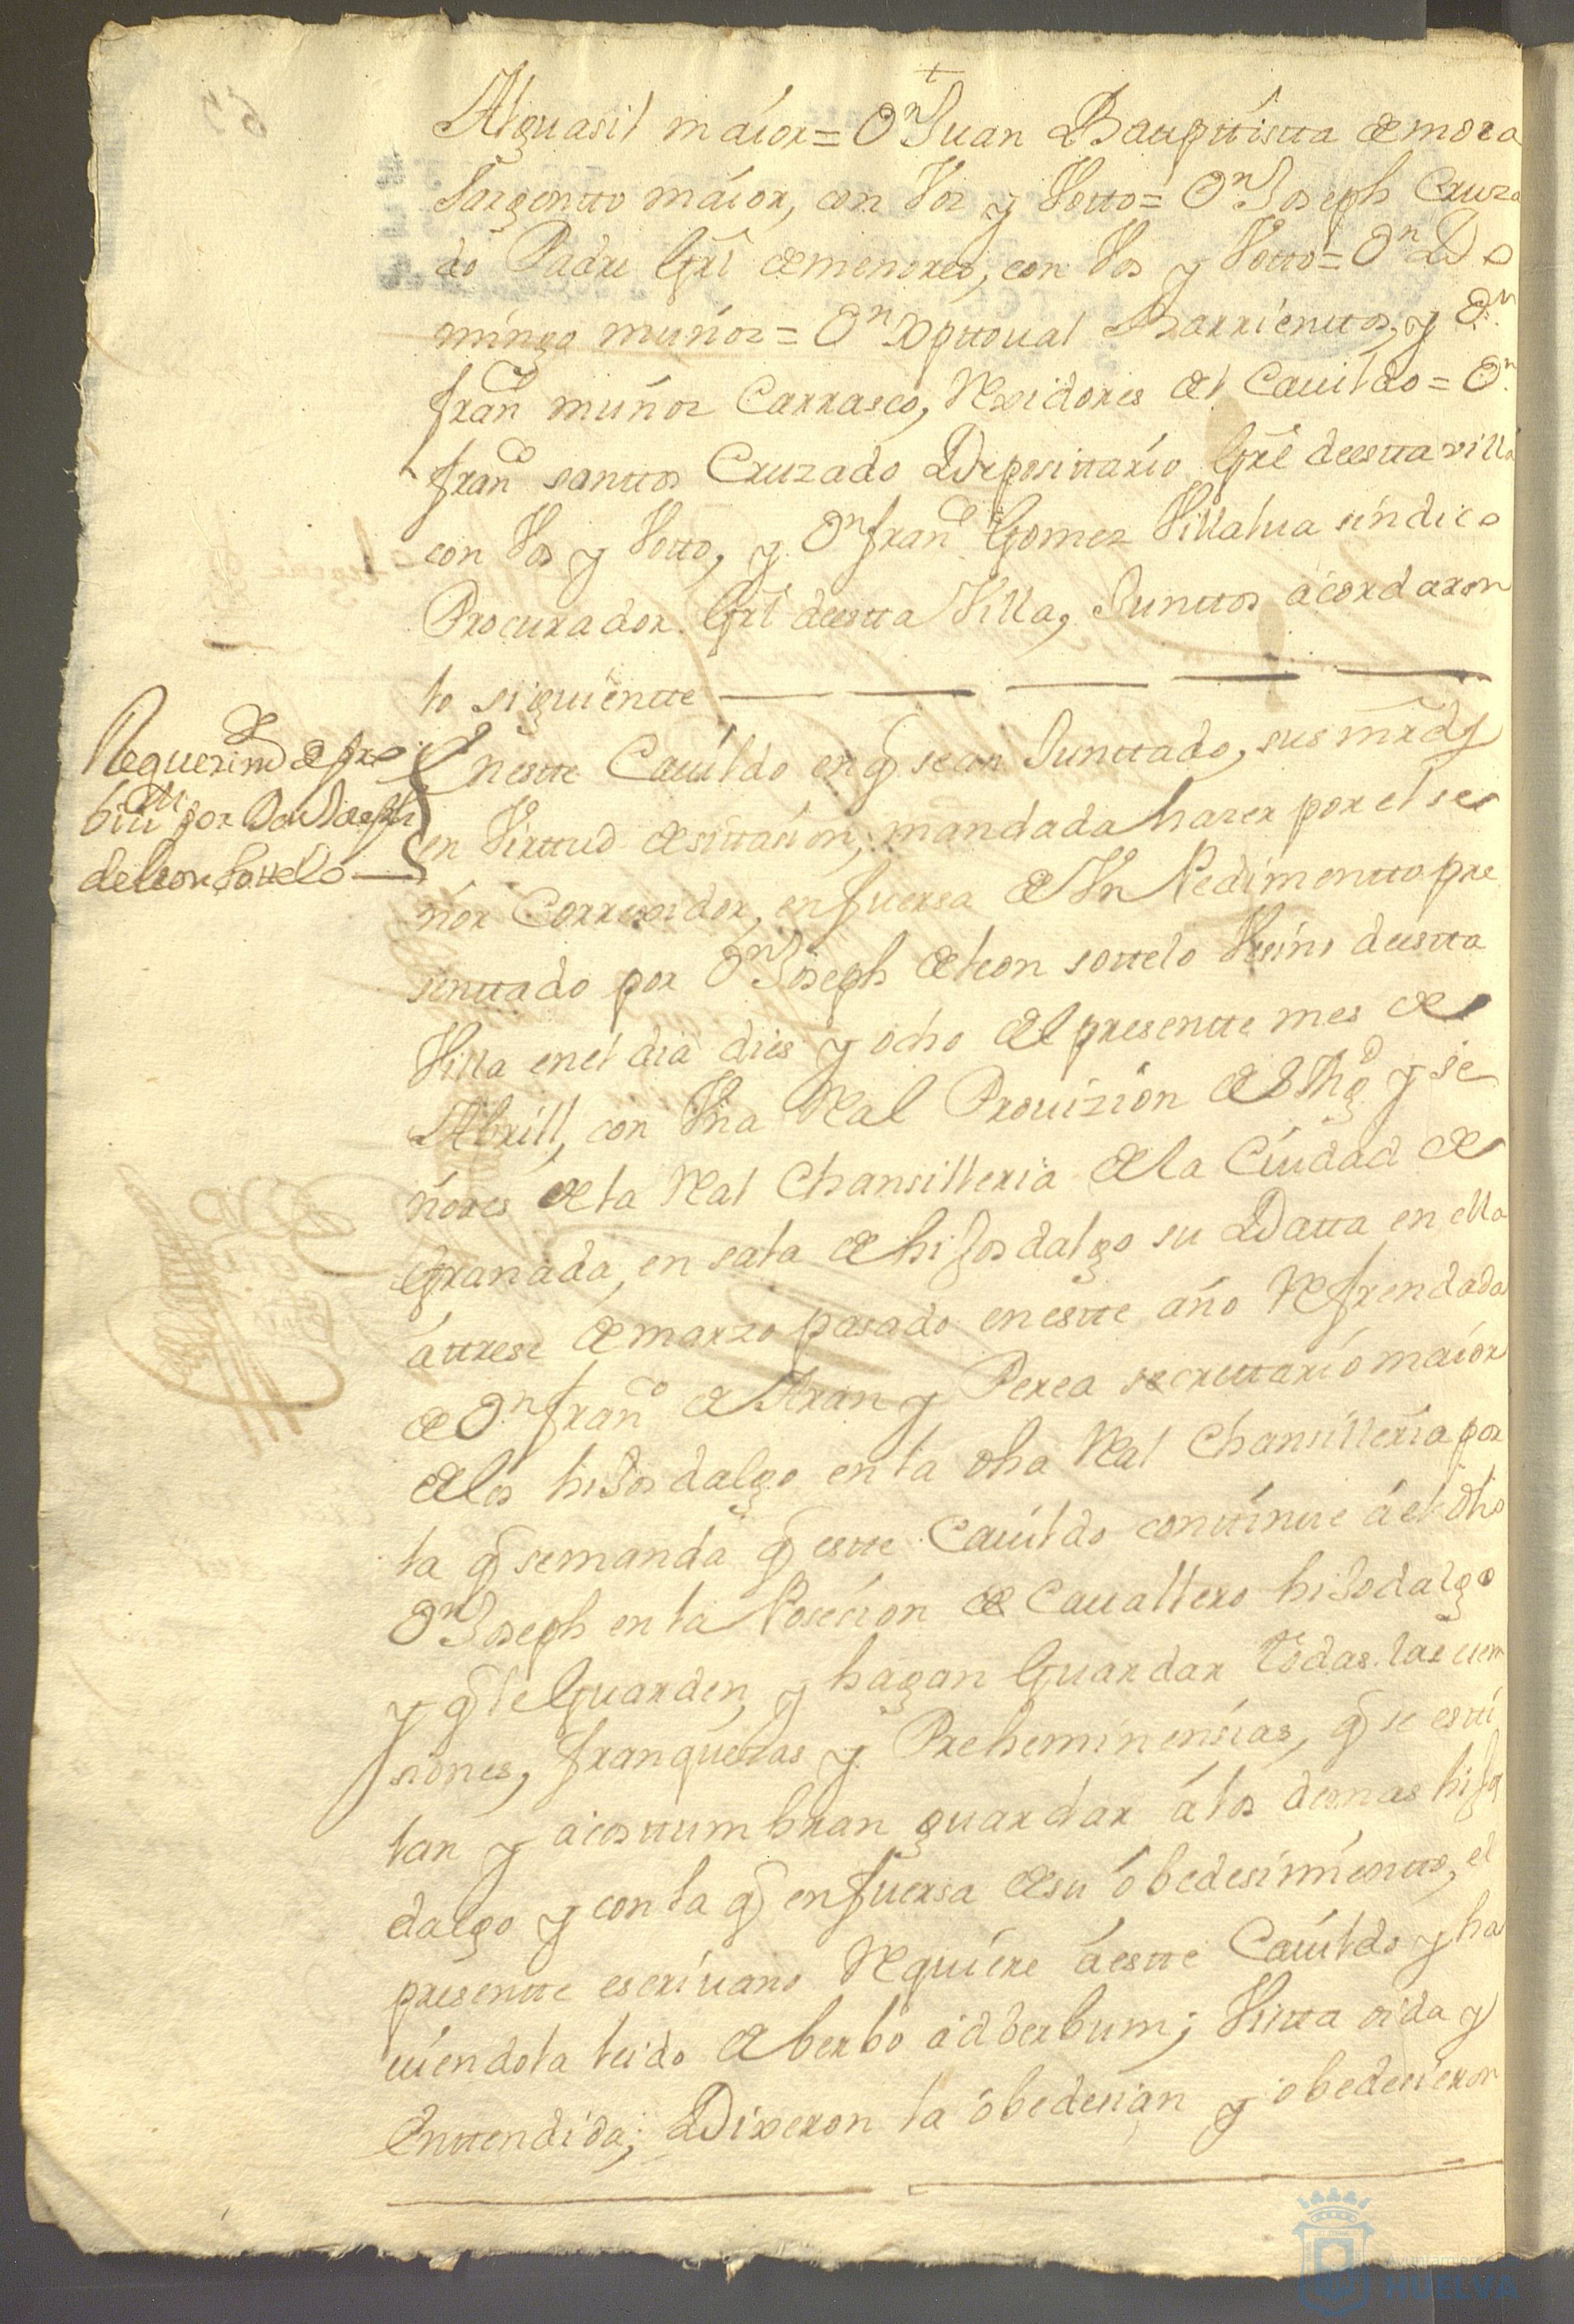 Alguasil maior = Dn Juan Bauptista de mora
Sargentto maior, con Vos y Votto = Dn Joseph Cruza
do Padre Grl de menores, con Vos y Votto = Dn Do
mingo muños = Dn Xpttoual Barrienttos, y Dn
franco muños Carrasco, Rexidores del Cauildo = Dn
franco santtos Cruzado Deposittario Grl de estta villa
con Vos y Votto, y Dn franco Gomez Villalua sindico
Procurador Grl de estta Villa, Junttos acordaron
lo siguientte
Requerimto de pro
por Dn Joseph
de leon Sottelo
En estte Cauildo en q se an Junttado, sus mrds
en Virttud de sittasion, mandada haser por el se
ñor Correxidor, en fuersa de Vn Pedimentto pre
senttado por Dn Joseph de leon sottelo Vesino de estta
Villa en el dia dies y ocho del presentte mes de
Abrill, con Vna Real Prouizion de S Mg y se
ñores de la Real Chansilleria de la Ciudad de
Granada, en sala de hijos dalgo su Datta en ella
á ttrese de marzo pasado en estte año Refrendada
de Dn franco de Aran y Perea secrettario maior
de los hijos dalgo en la dha Real Chansilleria por
la q se manda q estte Cauildo conttinue á el dho
Dn Joseph en la Posecion de Cauallero hijodalgo
y q le Guarden, y hagan Guardar todas las exem
siones, franquezas y Preheminensias, q se esti
lan y acosttumbran guardar á los demas hijos
dalgo y con la q en fuersa de su obedesimientto, el
presentte escriuano Requiere á estte Cauildo y ha
uiendola leido de berbo ad berbum; Vistta oida y
Enttendida; Dixeron la obedesian y obedesieron
Ayuntamiento
HUELVA